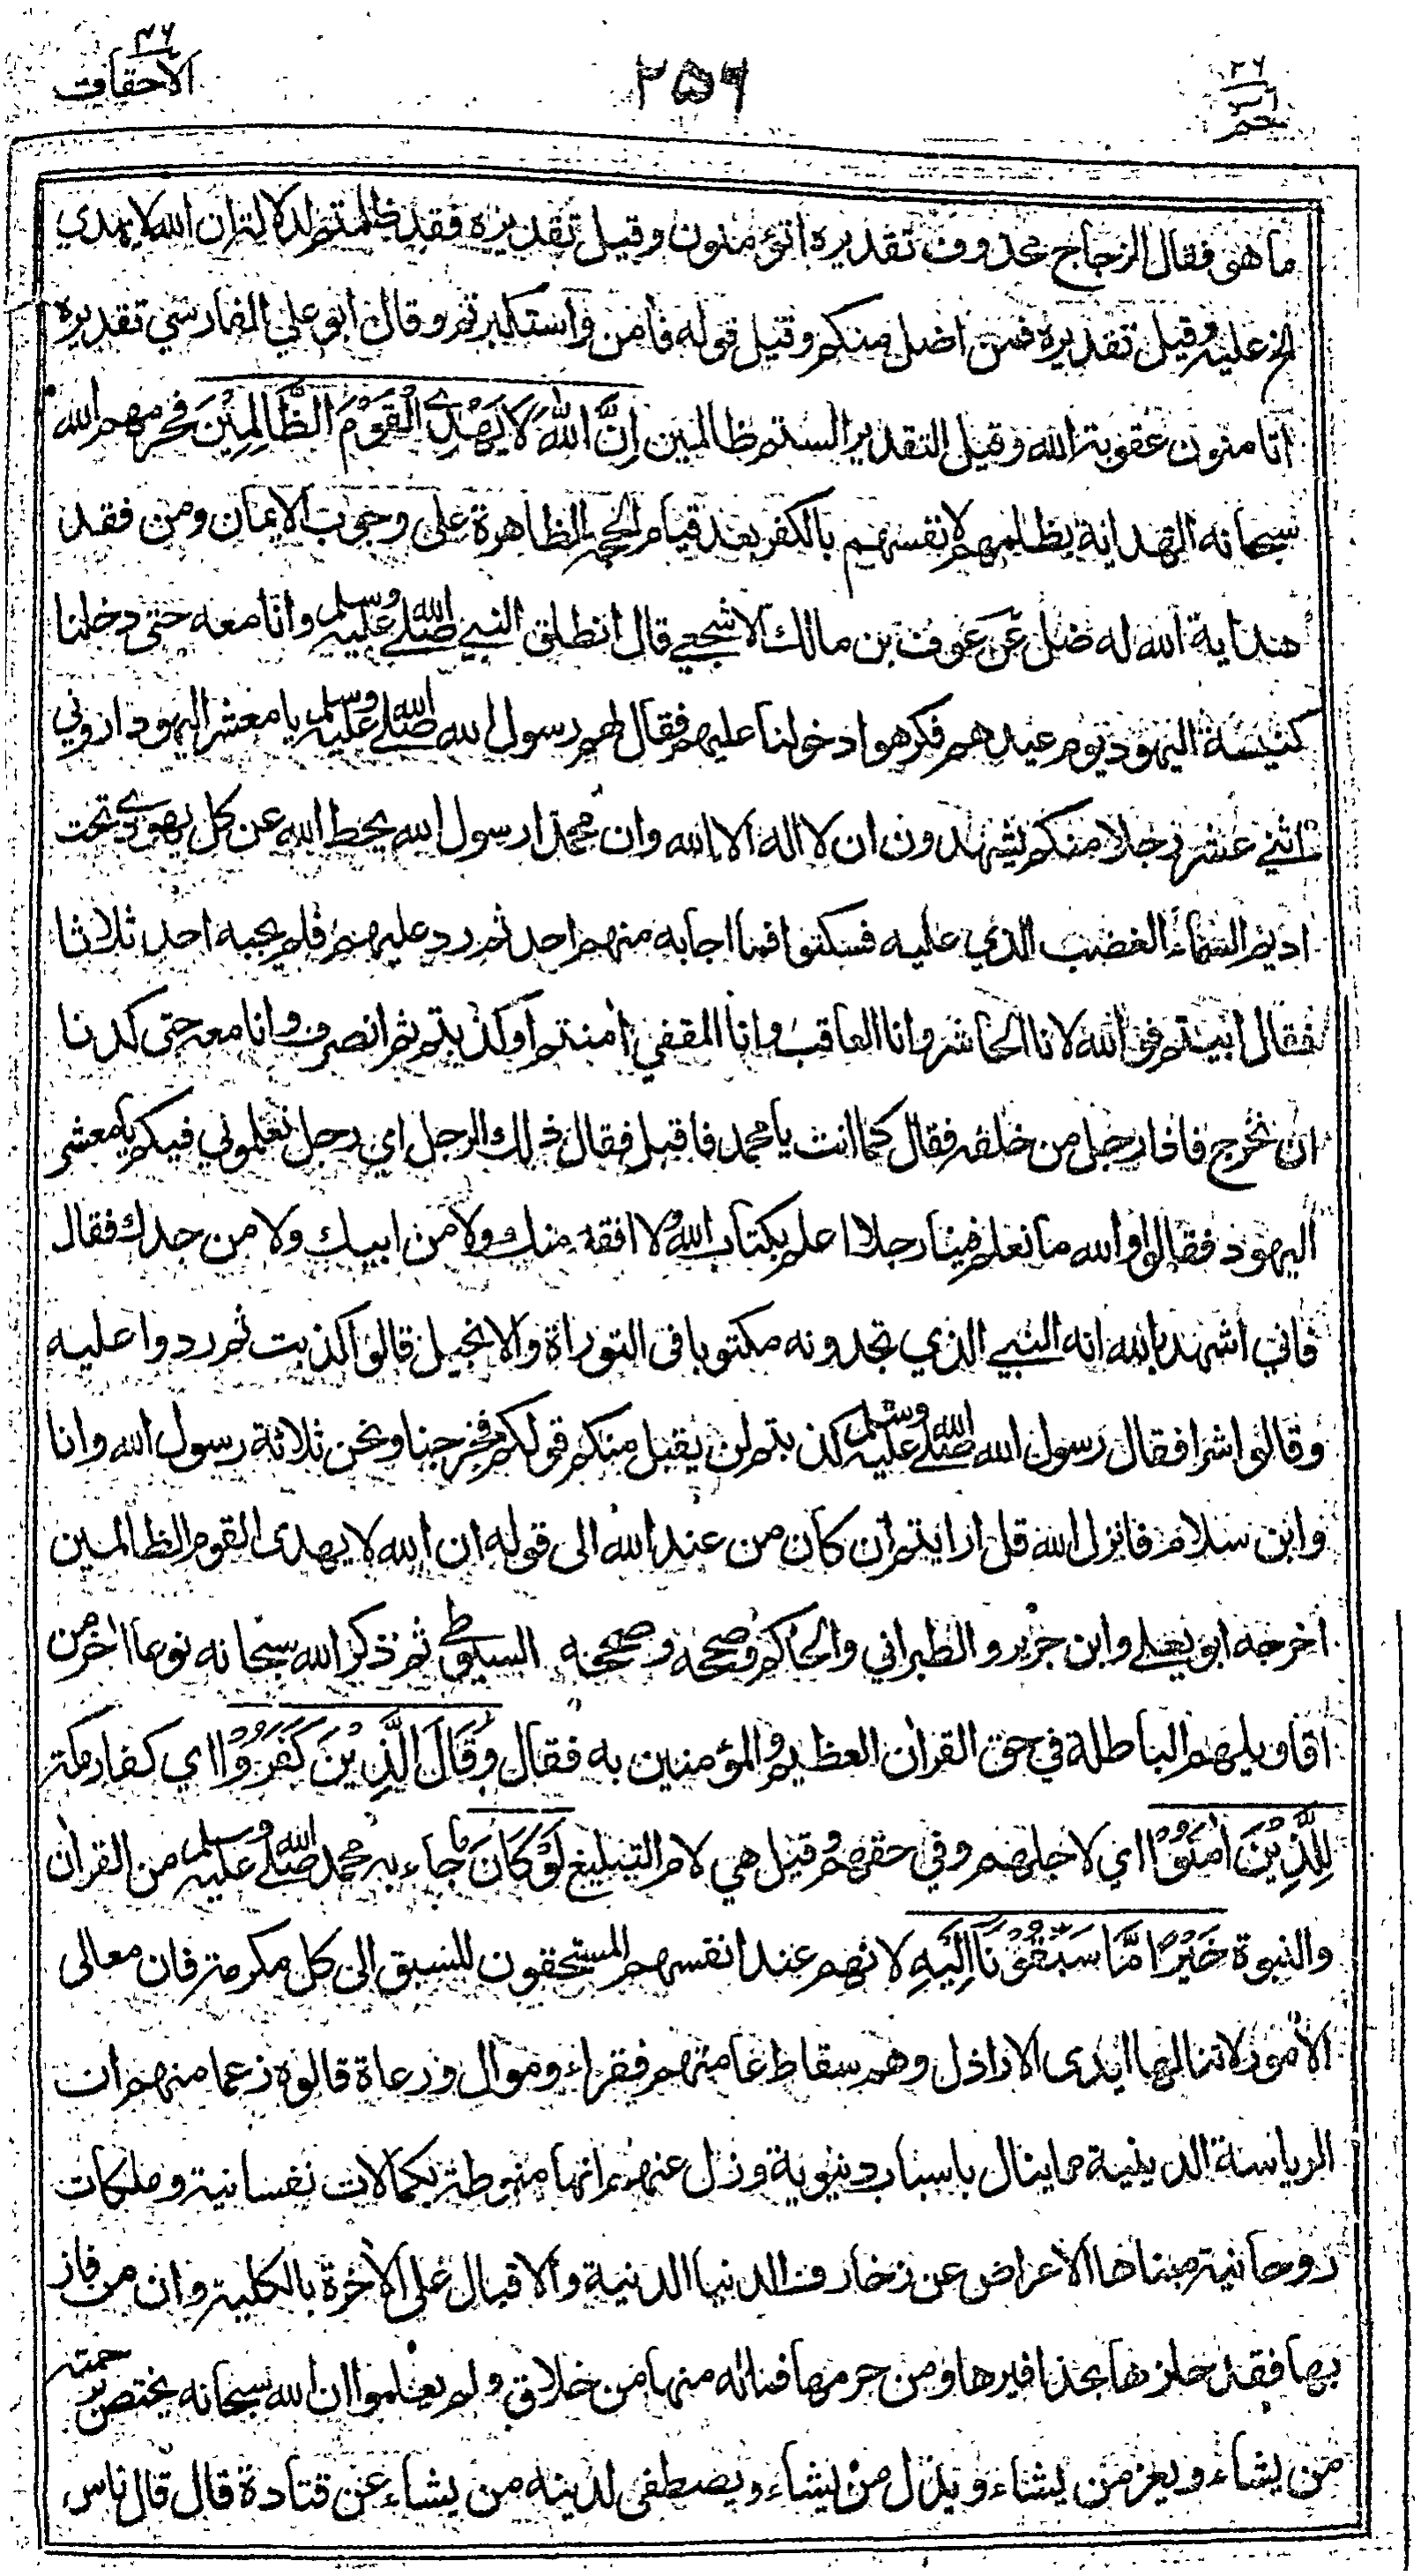 ٤٦ الاحقاف
٢٥٦
٢٦ حم
ما هو فقال الزجاج محذوف تقديره اتؤمنون وقيل تقديره فقد ظلمتم لدلالة ان الله لا يهدي
الخ عليه وقيل تقديره فمن اضل منكم وقيل قوله فآمن واستكبرتم وقال ابو علي الفارسي تقديره
اتأمنون عقوبة الله وقيل التقدير الستم ظالمين إِنَّ اللهَ لَا يَهْدِي الْقَوْمَ الظَّالِمِيْنَ فحرمهم الله
سبحانه الهداية بظلمهم لانفسهم بالكفر بعد قيام الحجة الظاهرة على وجوب الايمان ومن فقد
هداية الله له ضل عن عوف بن مالك الاشجعي قال انطلق النبي صلى الله عليه وسلم وانا معه حتى دخلنا
كنيسة اليهود يوم عيدهم فكرهوا دخولنا عليهم فقال لهم رسول الله صلى الله عليه وسلم يا معشر اليهود اروني
اثني عشر رجلا منكم يشهدون ان لا اله الا الله وان محمدا رسول الله يحط الله عن كل يهودي تحت
اديم السماء الغضب الذي عليه فسكتوا فما اجابه منهم احد ثم رد عليهم فلم يجبه احد ثلاثا
فقال ابيتم فو الله لانا الحاشر وانا العاقب وانا المقفي امنتم او كذبتم ثم انصرف وانا معه حتى كدنا
ان نخرج فاذا رجل من خلفه فقال كما انت يا محمد فاقبل فقال ذلك الرجل اي رجل تعلموني فيكم يا معشر
اليهود فقالوا والله ما نعلم فينا رجلا اعلم بكتاب الله ولا افقه منك ولا من ابيك ولا من جدك فقال
فاني اشهد بالله انه النبي الذي تجدونه مكتوبا في التوراة والانجيل قالوا كذبت ثم ردوا عليه
وقالوا شرا فقال رسول الله صلى الله عليه وسلم كذبتم لن يقبل منكم قولكم فخرجنا ونحن ثلاثة رسول الله وانا
وابن سلام فانزل الله قل ارايتم ان كان من عند الله الى قوله ان الله لا يهدى القوم الظالمين
اخرجه ابو يعلى وابن جرير والطبراني والحاكم وصححه وصححه السيوطي ثم ذكر الله سبحانه نوعا اخر من
اقاويلهم الباطلة في حق القران العظيم والمؤمنين به فقال وَقَالَ الَّذِيْنَ كَفَرُوْا اي كفار مكة
لِلَّذِيْنَ اٰمَنُوْا اي لاجلهم وفي حقهم وقيل هي لام التبليغ لَوْ كَانَ ما جاء به محمد صلى الله عليه وسلم من القران
والنبوة خَيْرًا مَّا سَبَقُوْنَا اِلَيْهِ لانهم عند انفسهم المستحقون للسبق الى كل مكرمة فان معالى
الامور لا تنالها ايدى الاراذل وهم سقاط عامتهم فقراء وموال ورعاة قالوه زعما منهم ان
الرياسة الدينية مما ينال باسباب دنيوية وزل عنهم انها منوطة بكمالات نفسانية وملكات
روحانية مبناها الاعراض عن زخارف الدنيا الدنية والاقبال على الاخرة بالكلية وان من فاز
بها فقد حازها بحذافيرها ومن حرمها فما له منها من خلاق ولم يعلموا ان الله سبحانه يختص برحمته
من يشاء ويعز من يشاء ويذل من يشاء ويصطفى لدينه من يشاء عن قتادة قال قال ناس